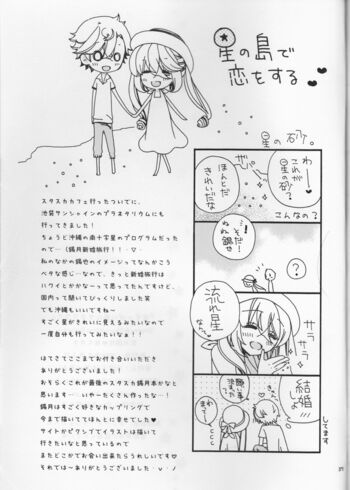 星の島で
恋をする
星の砂。
わー
これが
星の砂？
ほんとだ
きれいだな
こんなの？
…そだ！
ねね
？
流れ星
サラサラ
結婚
しよ
してます
スタスカカフェ行ったついでに、
池袋サンシャインのプラネタリウムにも
行ってきました！
ちょうど沖縄の南十字星のプログラムだった
ので…（錫月新婚旅行！！…♡…
私のなかの錫也のイメージってなんかこう
ベタな感じ…なので、きっと新婚旅行は
ハワイとかかなーって思ってたんですけど、
国内って聞いてびっくりしました笑
でも沖縄もいいですね〜
すごく星がきれいに見えるみたいなので
一度自分も行ってみたいなぁ！！
はてさてここまでお付き合いいただき
ありがとうございました！
おそらくこれが最後のスタスカ錫月本かなと
思います……いやーたくさん作ったな…！
錫月はすごく好きなカップリングで
今まで描いててほんとに幸せでした♥
サイトかピクシブでイラストは描いて
行きたいなと思っているので
またどこかでお会い出来たらうれしいです♡
それでは〜ありがとうございました…v…ノ